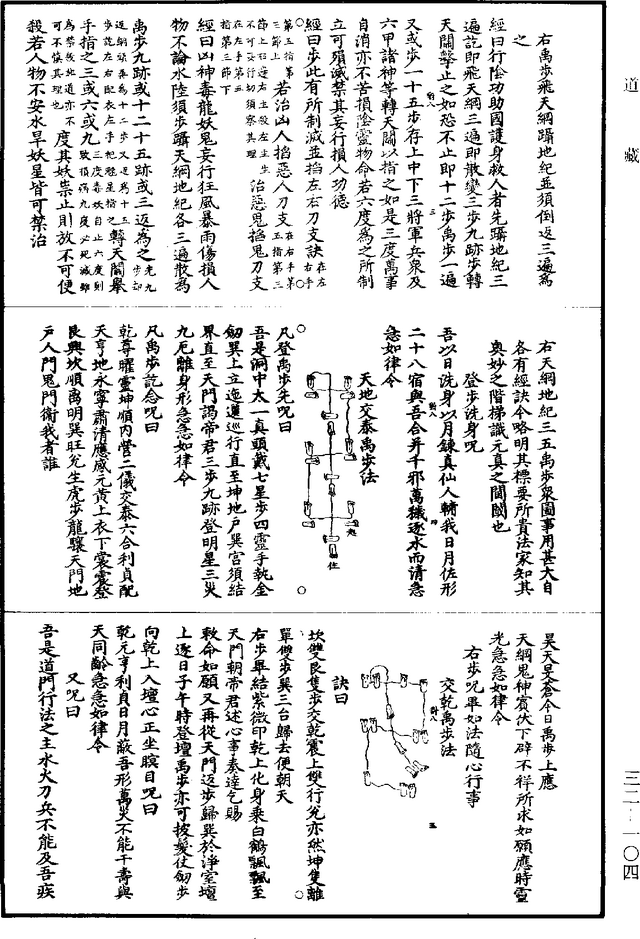 道藏
三二—一〇四
右禹步飛天綱躡地紀並須倒返三遍為
之
經曰行陰功助國護身救人者先躡地紀三
遍訖即飛天綱三遍即散變三步九跡步轉
天關擊之如恐不止即十二步禹步一遍
又或步一十五步存上中下三將軍兵衆及
六甲諸神等轉天關以指之如是三度萬事
自消亦不苦損陰靈物命若六度為之所制
立可殞滅禁其妄行損人功德
經曰步此有所制滅並掐左右刀支訣在左右手
第五指第三節上石邊右主殺左主生
若治凶人掐惡人刀支在右手第五指第三
不可妄行切須察其理
治惡鬼掐鬼刀支
在左手第五指第三節下
經曰凶神毒龍妖鬼妄行狂風暴雨傷損人
物不論水陸須步躡天綱地紀各三遍散為
禹步九跡或十二十五跡或三返為之
轉天關舉
手指之三或六或九
度其妖祟止則放不可便
殺若人物不安水旱妖星皆可禁治
右天綱地紀三五禹步衆圖事用甚大日
各有經訣今略明其標要所貴法家知其
奥妙之階梯識元真之閫閾也
登步洗身呪
吾以日洗身以月鍊真仙人輔我日月佐形
二十八宿與吾合并千邪萬穢逐水而清急
急如律令
天地交泰禹步法
起
住
凡登禹步先呪曰
吾是洞中太一真頭戴七星步四靈手執金
劒巽上立迤邐巡行直至坤地戶巽宮須結
界直至天門謁帝君三步九跡登明星三災
九厄離身形急急如律令
凡禹步訖念呪曰
乾尊曜靈坤順內營二儀交泰六合利貞配
天亨地永寧肅清應感元黃上衣下裳震登
艮興坎順离明巽旺兌生虎步龍驤天門地
戶人門鬼門衞我者誰
昊天旻蒼今日禹步上應
天綱鬼神賓伏下辟不祥所求如願應時靈
光急急如律令
右步呪畢如法隨心行事
交乾禹步法
訣曰
坎雙艮隻步交乾震上雙行兌亦然坤隻離
單雙步巽三台歸去便朝天
右步畢結紫微印乾上化身乘白鶴飄飄至
天門朝帝君述心事奏達乞賜
敕命如願又再從天門返步歸巽於淨室壇
上逐日子午時登壇禹步亦可披髮仗劒步
向乾上入壇心正坐瞑目呪曰
乾元亨利貞日月蔽吾形萬災不能干壽與
天同齡急急如律令
又呪曰
吾是道門行法之主水火刀兵不能及吾疾